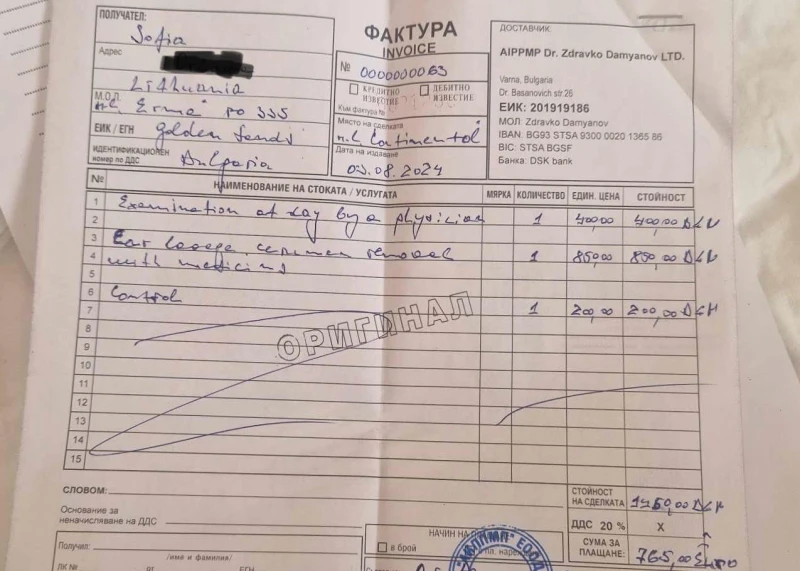 ПОЛУЧАТЕЛ:
Sofia
Адрес
Lithuania
М.О.Л.
ЕИК / ЕГН
Golden Sands
ИДЕНТИФИКАЦИОНЕН
номер по ДДС
Bulgaria
ФАКТУРА
INVOICE
№ 0000000063
КРЕДИТНО
ИЗВЕСТИЕ
ДЕБИТНО
ИЗВЕСТИЕ
Към фактура №
Място на сделката
Дата на издаване
03.08.2024
ДОСТАВЧИК
AIPPMP Dr. Zdravko Damyanov LTD.
Varna, Bulgaria
Dr. Basanovich str 26
ЕИК: 201919186
МОЛ: Zdravko Damyanov
IBAN: BG93 STSA 9300 0020 1365 86
BIC: STSA BGSF
Банка: DSK bank
№ НАИМЕНОВАНИЕ НА СТОКАТА / УСЛУГАТА МЯРКА КОЛИЧЕСТВО ЕДИН. ЦЕНА СТОЙНОСТ
1 Examination at day by a physician 1 400,00 400,00
2
3 Ear removal
4 with 1 850,00 850,00
5
6 Control
7 1 200,00 200,00
8
ОРИГИНАЛ
9
10
11
12
13
14
15
СЛОВОМ:
СТОЙНОСТ
НА СДЕЛКАТА 1450,00
Основание за
неначисляване на ДДС
ДДС 20 % X
СУМА ЗА
ПЛАЩАНЕ: 765,00 Euro
Получил:
/име и фамилия/
ЕГН
в брой